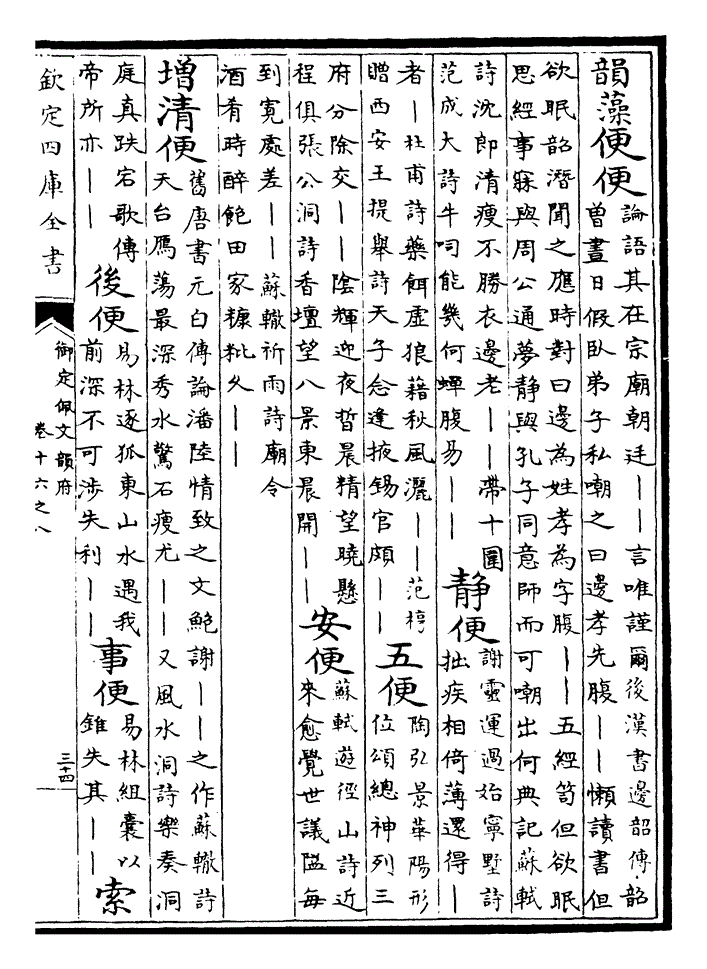 韻藻便便論語其在宗廟朝廷——言唯謹爾後漢書邊韶傳韶
曾晝日假臥弟子私嘲之曰邊孝先腹——懶讀書但
欲眠韶潛聞之應時對曰邊為姓孝為字腹——五經笥但欲眠
思經事寐與周公通夢靜與孔子同意師而可嘲出何典記蘇軾
詩沈郎清瘦不勝衣邊老——帶十圍
范成大詩牛呞能幾何蟬腹易——
靜便謝靈運過始寧墅詩
拙疾相倚薄還得—
者—杜甫詩藥餌虛狼藉秋風灑——范梈
贈西安王提舉詩天子念逢掖錫官頗——
五便陶弘景華陽形
位頌總神列三
府分除交——陰輝迎夜晳晨精望曉懸
程俱張公洞詩香壇望八景東晨開——
安便蘇軾遊徑山詩近
來愈覺世議隘每
到寬處差——蘇轍祈雨詩廟令
酒肴時醉飽田家糠籺久——
增清便舊唐書元白傳論潘陸情致之文鮑謝——之作蘇轍詩
天台鴈蕩最深秀水驚石瘦尤——又風水洞詩樂奏洞
庭真跌宕歌傳
帝所亦——
後便易林逐狐東山水遇我
前深不可涉失利——
事便易林組囊以
錐失其——
索
欽定四庫全書
御定佩文韻府
卷十六之八
三十四